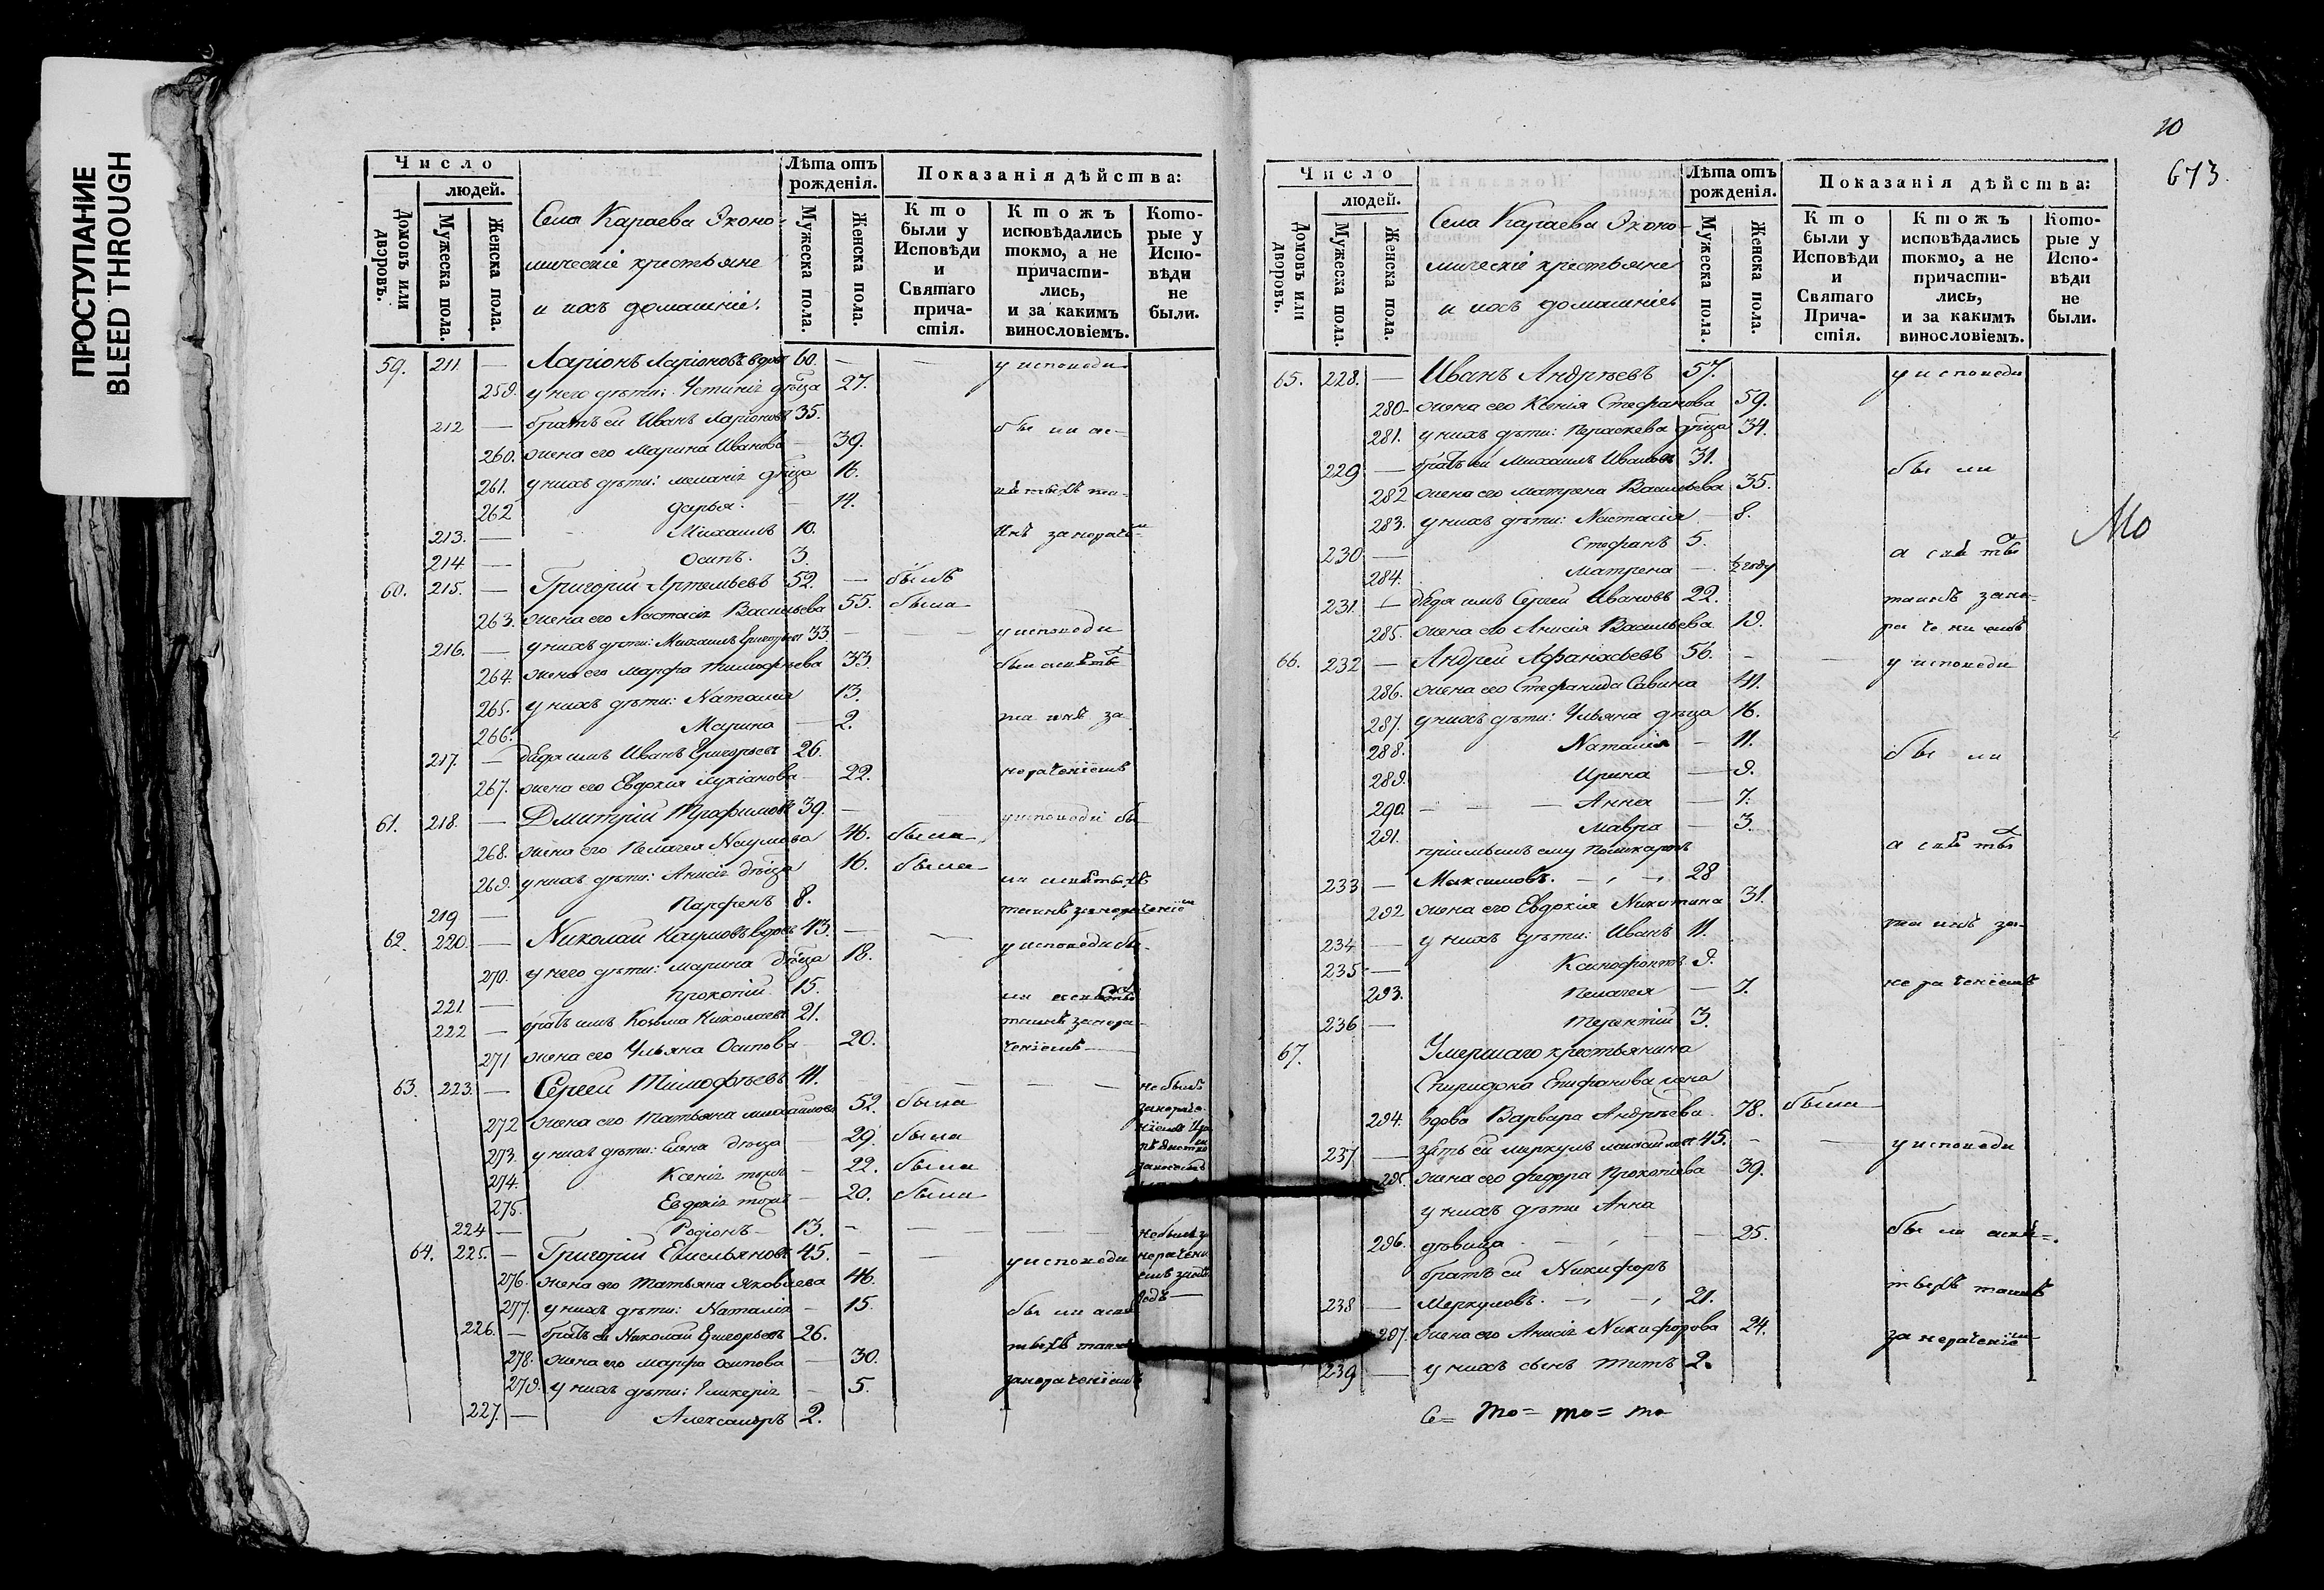 ПРОСТУПАНИЕ
BLEED THROUGH
Число
людей.
Домовъ или дворовъ.
Мужеска пола.
Женска пола.
Села Караева Эконо-
мическiе крестьяне
и ихъ домашнiе.
Лѣта отъ рожденiя.
Мужеска пола.
Женска пола.
Показанiя дѣйства:
Кто были у Исповѣди и Святаго причастiя.
Ктожъ исповѣдались токмо, а не причасти-лись, и за какимъ винословiемъ.
Кото-рые у Испо-вѣди не были.
59. 211. — Ларiонъ Ларiоновъ вдовъ 60. — — у исповеди
259. у него дѣти: Устинiя дѣвца 27.
212 — братъ ей Иванъ Ларiоновъ 35.
260. жена его Марина Иванова — 39. были ас-
261. у нихъ дѣти: меланiя дѣвца 16.
262 дарья. — 14.
213. — Михаилъ 10.
214 — Осипъ. 3.
60. 215. — Григорiй Артемьевъ 52. — былъ
263. жена его Настасiя Васильева 55. была
216. — у нихъ дѣти: Михаилъ Григорьевъ 33 — — у исповеди
264. жена его марфа тимофѣева 33.
265. у нихъ дѣти: Наталiя 13.
266. Марина — 2. таинъ за
217. — Иванъ Григорьевъ 26.
267. жена его Евдокiя лукiанова 22. нераченiемъ
61. 218. — Дмитрiй Трофимовъ 39. — у исповеди бы
268. жена его Пелагея Наумова 46. была
269. у нихъ дѣти: Анисiя дѣвца 16. была
219 — Парфенъ 8.
62. 220. — Николай Наумовъ вдовъ 43. — — у исповеди бы-
270. у него дѣти: марина дѣвца 18.
221. — прокопiй 15.
222 — братъ имъ Козьма Николаевъ 21. таинъ занера-
271 жена его Ульяна Осипова 20. ченiемъ
63. 223. — Сергей Тимофѣевъ 41. — — — не былъ
272 жена его Татьяна михайлова 52. была
273. у нихъ дѣти: Елена дѣвца — 29. была
274. Ксенiя тожъ — 22. была
275. Евдокiя тожъ — 20. была
224 — Родiонъ 13. — — — не былъ за
64. 225. — Григорiй Емельяновъ 45. — — у исповеди нерачени
276. жена его Татьяна Яковлева 46. емъ
277. у нихъ дѣти: Наталiя — 15. были
226. — братъ ей Николай Григорьевъ 26.
278. жена его марфа осипова — 30.
279. у нихъ дѣти: Гликерiя — 5. занераченiемъ
227. — Александръ 2.
10
673.
Число
людей.
Домовъ или дворовъ.
Мужеска пола.
Женска пола.
Села Караева Эконо-
мическiе крестьяне
и ихъ домашнiе
Лѣта отъ рожденiя.
Мужеска пола.
Женска пола.
Показанiя дѣйства:
Кто были у Исповѣди и Святаго Прича-стiя.
Ктожъ исповѣдались токмо, а не причасти-лись, и за какимъ винословiемъ.
Кото-рые у Испо-вѣди не были.
65. 228. — Иванъ Андрѣевъ 57. у исповеди
280. жена его Ксенiя Стефанова 59.
281. у нихъ дѣти: Параскева дѣвца 34.
229 — братъ ей Михаилъ Ивановъ 31. были
282 жена его матрена Васильева 35.
283. у нихъ дѣти: Настасiя — 8.
Мо
230 — Стефанъ 5.
284. матрена — ½ году
231. — Сергей Ивановъ 22. таинъ зане-
285. жена его Анисiя Васильева 19. раченiемъ
66. 232 — Андрей Афанасьевъ 56. — — у исповеди
286. жена его Стефанида Савина 41.
287. у нихъ дѣти: Ульяна дѣвца 16.
288. Наталiя — 11. были
289. Ирина — 9.
290. — — Анна — 7.
291. мавра — 3.
прiимышъ ему Поликарпъ
233 — Максимовъ. — 28
292 жена его Евдокiя Никитина 31.
234 — у нихъ дѣти: Иванъ 11. таинъ за-
235 — Ксенофонтъ 9.
293. Пелагея — 7. нераченiемъ
236 — терентiй 3.
67. Умершаго крестьянина
Спиридона Епифанова жена
294. вдова Варвара Андрѣева. 78. была
237 — зять ей меркулъ михайловъ 45. — — у исповеди
295. жена его федора Прокопiева 39.
у нихъ дѣти Анна
296. дѣвица — 25. были
братъ ей Никифоръ
238 — Меркуловъ. — 21.
297. жена его Анисiя Никифорова 24. за нераченiем
239 — у нихъ сынъ титъ 2.
Се= то= то= то